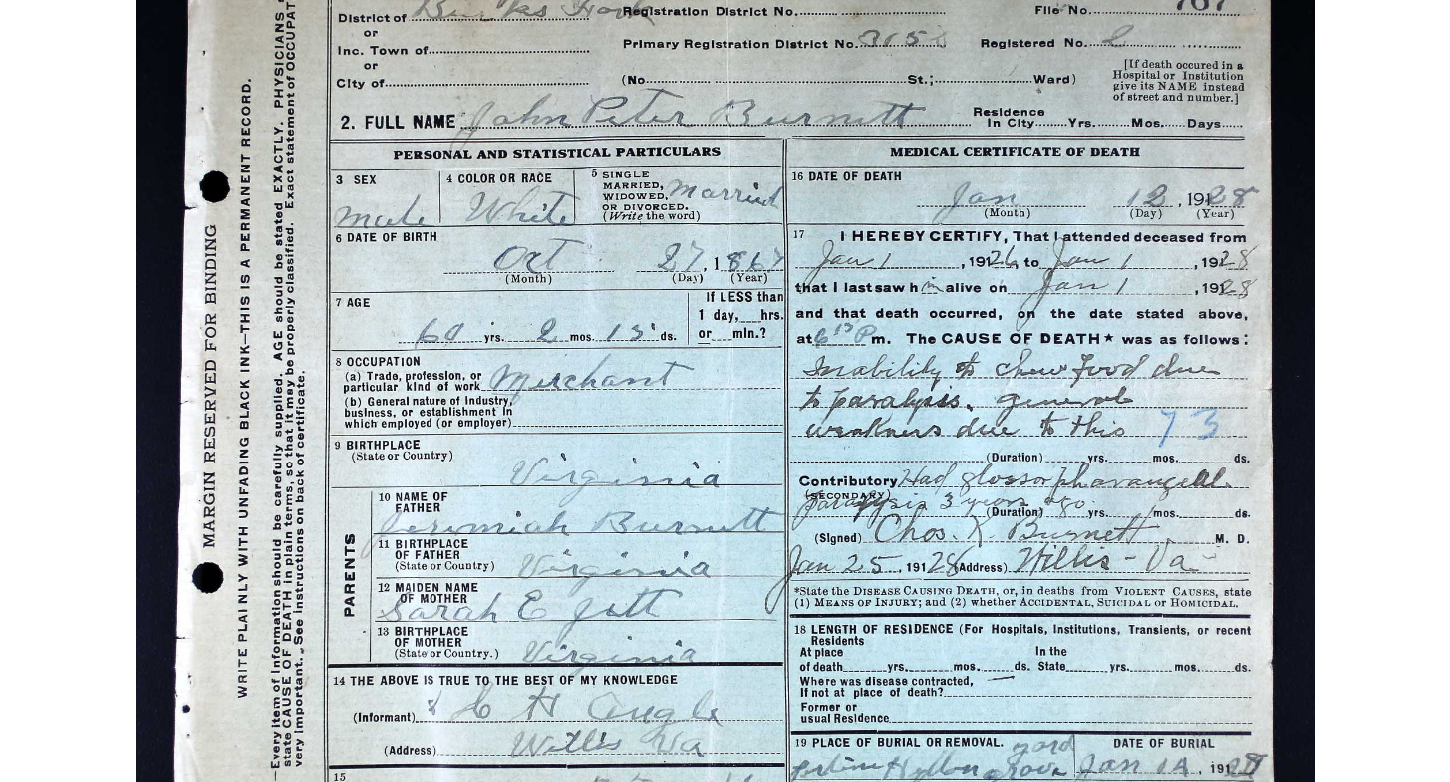 District of Burks Fork Registration District No. File No. 767
or
Inc. Town of Primary Registration District No. 3153 Registered No. 2
or
City of (No. St.; Ward) [If death occured in a Hospital or Institution give its NAME instead of street and number.]
2. FULL NAME John Peter Burnett Residence In City Yrs. Mos. Days
PERSONAL AND STATISTICAL PARTICULARS
3 SEX
male
4 COLOR OR RACE
White
5 SINGLE
MARRIED,
WIDOWED,
OR DIVORCED.
(Write the word)
Married
6 DATE OF BIRTH
Oct 27, 1867
(Month) (Day) (Year)
7 AGE
60 yrs. 2 mos. 15 ds.
If LESS than
1 day, hrs.
or min.?
8 OCCUPATION
(a) Trade, profession, or
particular kind of work Merchant
(b) General nature of Industry,
business, or establishment in
which employed (or employer)
9 BIRTHPLACE
(State or Country)
Virginia
PARENTS
10 NAME OF
FATHER
Jeremiah Burnett
11 BIRTHPLACE
OF FATHER
(State or Country) Virginia
12 MAIDEN NAME
OF MOTHER
Sarah E
13 BIRTHPLACE
OF MOTHER
(State or Country.) Virginia
14 THE ABOVE IS TRUE TO THE BEST OF MY KNOWLEDGE
(Informant) C H Angle
(Address) Willis Va
15
MEDICAL CERTIFICATE OF DEATH
16 DATE OF DEATH
Jan 12, 1928
(Month) (Day) (Year)
17 I HEREBY CERTIFY, That I attended deceased from
Jan 1, 1926, to Jan 1, 1928
that I last saw him alive on Jan 1, 1928
and that death occurred, on the date stated above,
at 6 15 P m. The CAUSE OF DEATH* was as follows:
Inability to chew food due
to paralysis, general
weakness due to this 73
(Duration) yrs. mos. ds.
Contributory Had glossopharangeal
(SECONDARY)
paralysis 3 years ago
(Duration) yrs. mos. ds.
(Signed) Chas. K Burnett M. D.
Jan 25, 1928 (Address) Willis - Va
*State the DISEASE CAUSING DEATH, or, in deaths from VIOLENT CAUSES, state
(1) MEANS OF INJURY; and (2) whether ACCIDENTAL, SUICIDAL OR HOMICIDAL.
18 LENGTH OF RESIDENCE (For Hospitals, Institutions, Transients, or recent
Residents
At place In the
of death yrs. mos. ds. State yrs. mos. ds.
Where was disease contracted,
If not at place of death?
Former or
usual Residence
19 PLACE OF BURIAL OR REMOVAL. DATE OF BURIAL
Jan 14, 1928
MARGIN RESERVED FOR BINDING
WRITE PLAINLY WITH UNFADING BLACK INK—THIS IS A PERMANENT RECORD.
—Every item of information should be carefully supplied. AGE should be stated EXACTLY. PHYSICIANS
state CAUSE OF DEATH in plain terms, so that it may be properly classified. Exact statement of OCCUPAT
very important. See instructions on back of certificate.